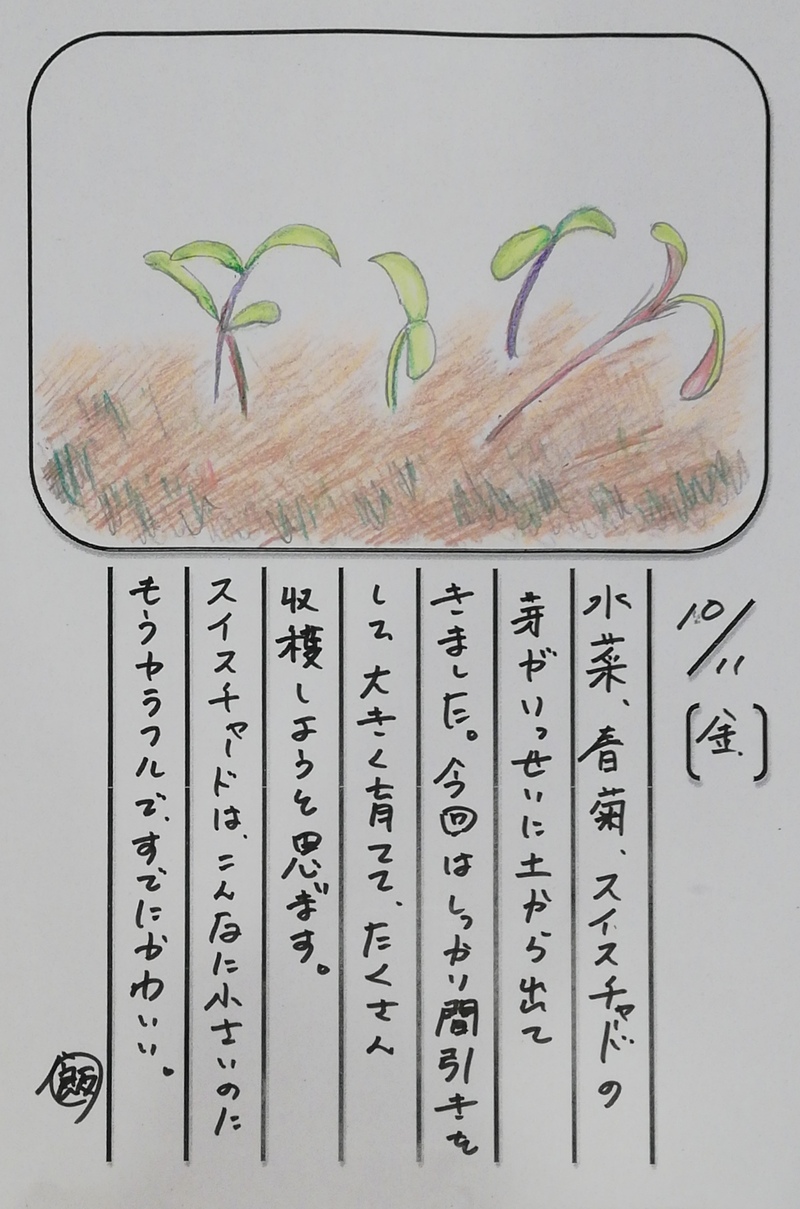 10/11
[金]
水菜、春菊、スイスチャードの
芽がいっせいに土から出て
きました。今回はしっかり間引きを
して、大きく育てて、たくさん
収穫しようと思います。
スイスチャードは、こんなに小さいのに
もうカラフルで、すでにかわいい。
飯